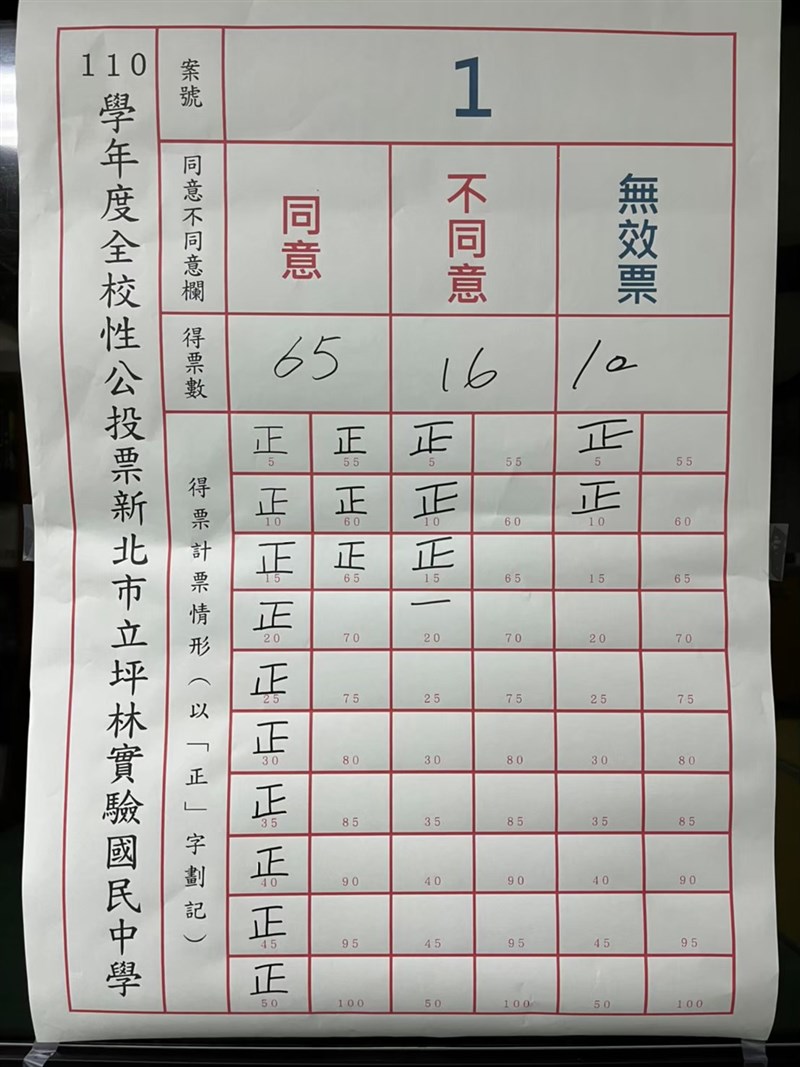 110學年度全校性公投票新北市立坪林實驗國民中學
案號
1
同意不同意欄
同意
不同意
無效票
得票數
65
16
10
得票計票情形（以「正」字劃記）
正 5 正 55 正 5 55 正 5 55
正 10 正 60 正 10 60 正 10 60
正 15 正 65 正 15 65 15 65
正 20 70 一 20 70 20 70
正 25 75 25 75 25 75
正 30 80 30 80 30 80
正 35 85 35 85 35 85
正 40 90 40 90 40 90
正 45 95 45 95 45 95
正 50 100 50 100 50 100